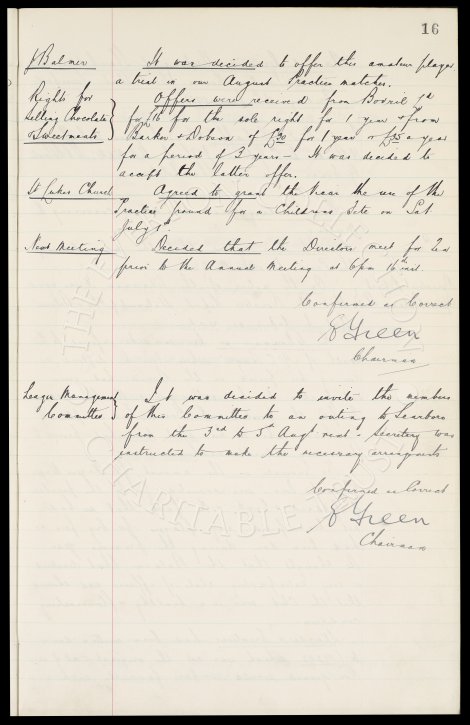 16
J Balmer It was decided to offer this amateur player
a trial in our August Practice matches.
Rights for Offers were received from Bovril Ld
Selling Chocolate for £16 for the sole right for 1 year & from
& Sweetmeats Barker & Dobson of £30 for 1 year or £35 a year
for a period of 3 years – It was decided to
accept the latter offer.
St Lukes Church Agreed to grant the Vicar the use of the
Practice Ground for a Childrens Fete on Sat
July 1st.
Next Meeting Decided that the Directors meet for Tea
prior to the Annual Meeting at 6pm 16th inst.
Confirmed as Correct
E Green
Chairman
League Management It was decided to invite the members
Committee of this Committee to an outing to Scarboro
from the 3rd to 5th Augt next – Secretary was
instructed to make the necessary arrangmts
Confirmed as Correct
E Green
Chairman
THE EVERTON
CHARITABLE TRUST